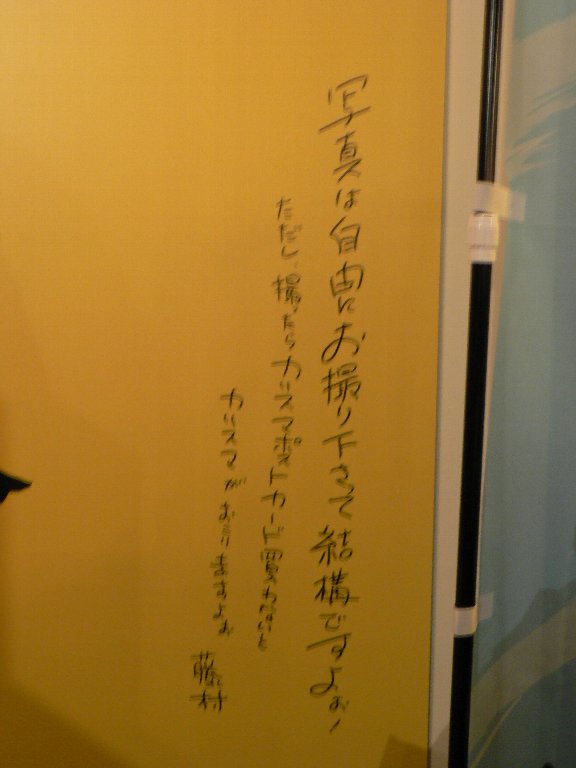 写真は自由にお撮り下さって結構ですよぉ!
ただし、撮ったらカリスマポストカード買わないと
カリスマがおこりますよぉ
藤村